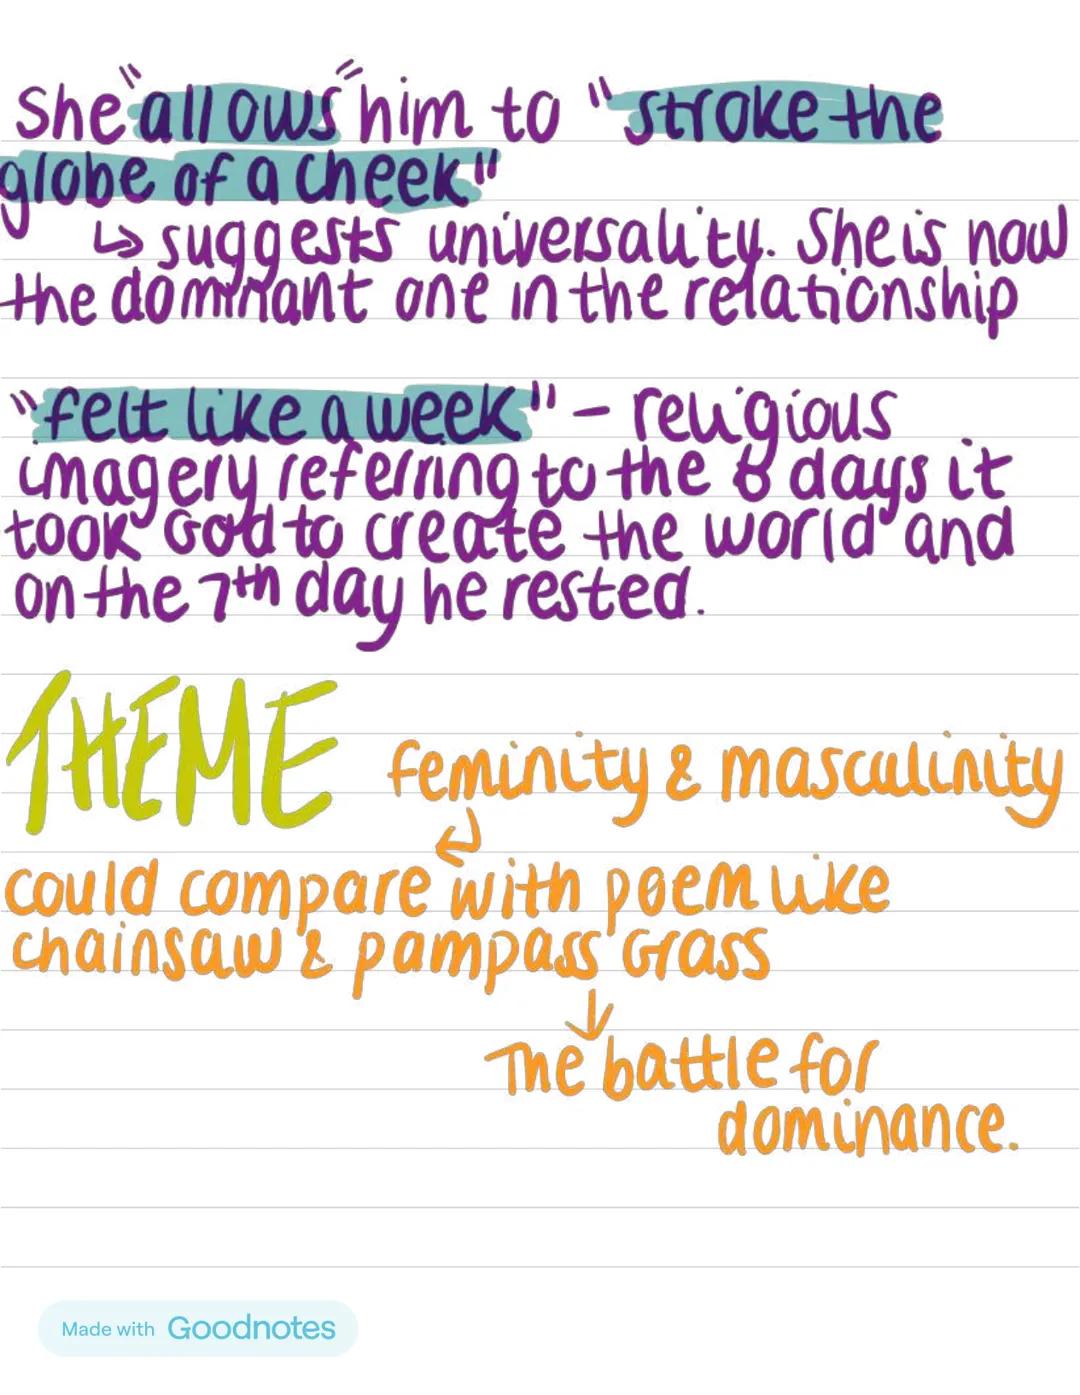 She "allows" him to "stroke the
globe of a cheek"
↳ suggests universality. She is now
the dominant one in the relationship
"felt like a week" – religious
imagery referring to the 6 days it
took God to create the world and
on the 7th day he rested.
THEME feminity & masculinity
could compare with poem like
chainsaw & pampass Grass
The battle for
dominance.
Made with Goodnotes